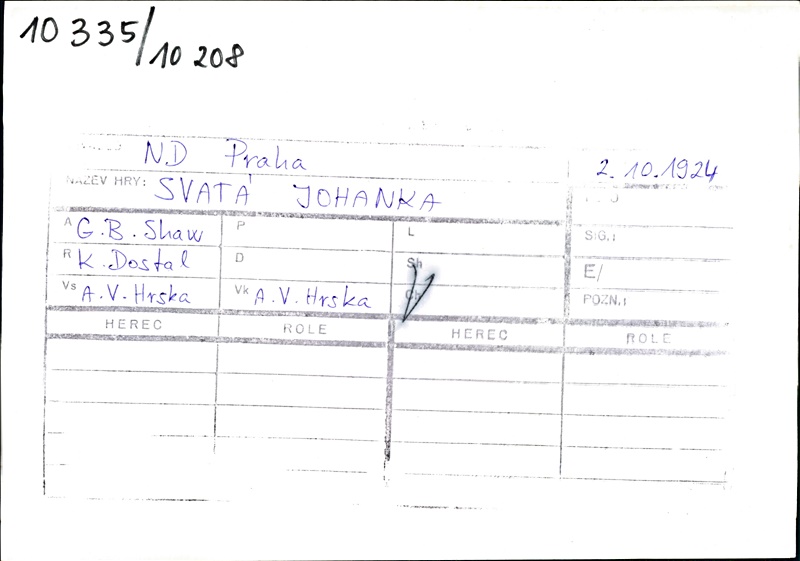 10 335/10 208
N.D Praha
2. 10. 1924
NÁZEV HRY: SVATÁ JOHANKA
A G. B. Shaw P L SIG.:
R K. Dostal D Sh E/
Vs A. V. Hrska Vk A. V. Hrska POZN.:
HEREC ROLE HEREC ROLE